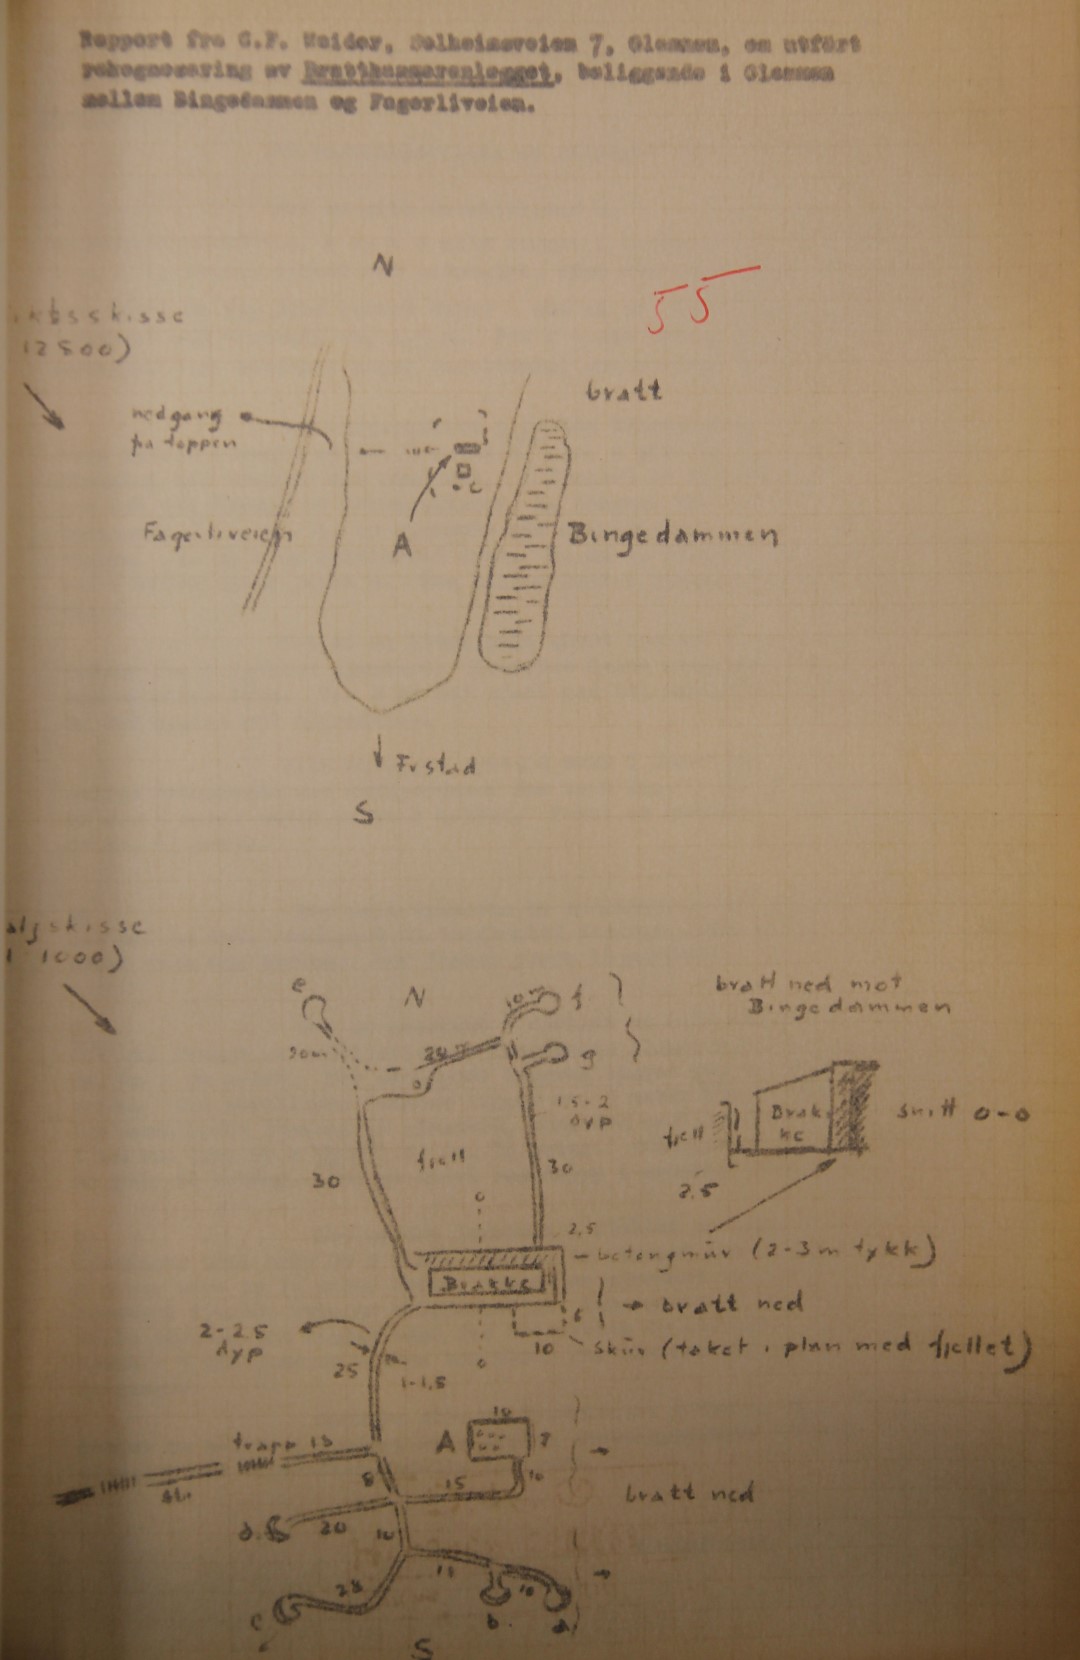 Rapport fra G.F. Weider, Solheimsveien 7, Glemmen, om utført
rekognosering av Bratthammeranlegget, beliggende i Glemmen
mellem Bingedammen og Fagerliveien.
N
55
ktsskisse
12500)
bratt
nedgang
på toppen
Fagerliveien
A
Bingedammen
Frstad
S
aljskisse
1 1000)
e
N
10
f
g
bratt ned mot
Bingedammen
20m
1.5-2
dyp
fjell
30
30
fjell
Brak
ke
snitt o-o
2.5
2,5
betongmur (2-3 m tykk)
Brakke
bratt ned
6
10
skur (taket i plan med fjellet)
2-2.5
dyp
25
1-1,5
trapp 13
A
10
7
8
15
10
bratt ned
d.
20
10
11
10
28
c
b.
a
S